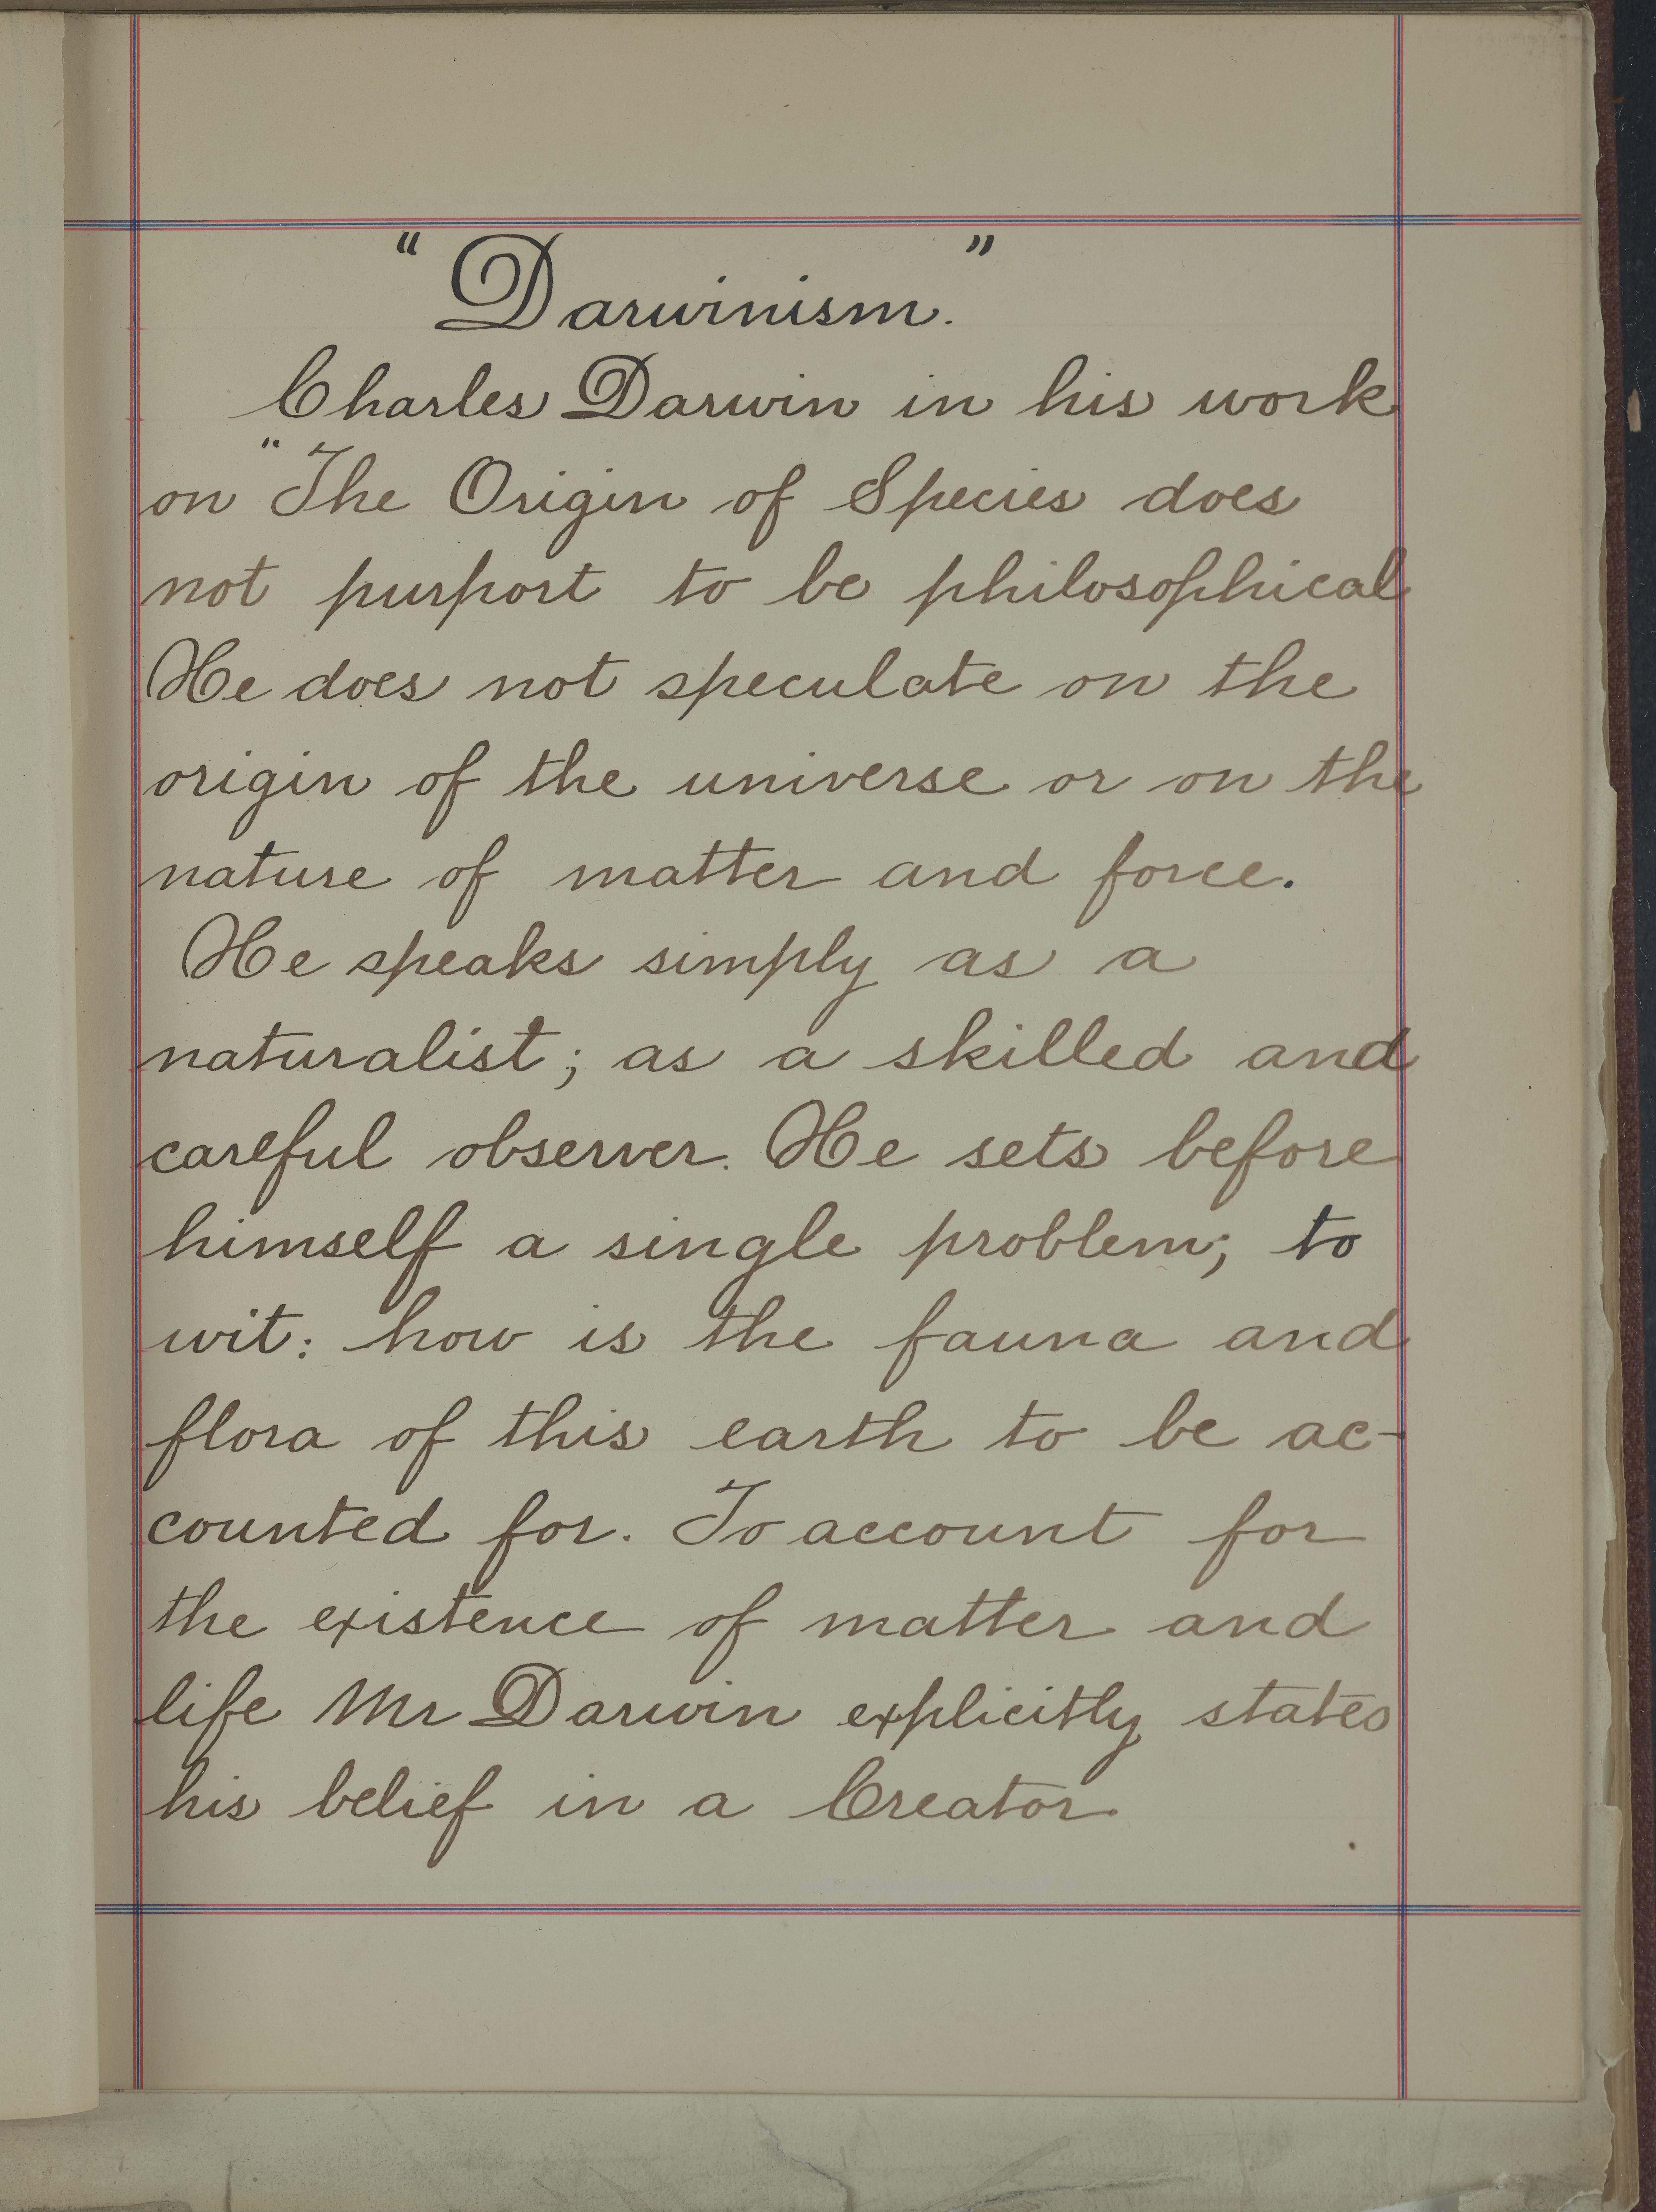 "Darwinism."
Charles Darwin in his work
on "The Origin of Species does
not purport to be philosophical
He does not speculate on the
origin of the universe or on the
nature of matter and force.
He speaks simply as a
naturalist; as a skilled and
careful observer. He sets before
himself a single problem; to
wit: how is the fauna and
flora of this earth to be ac-
counted for. To account for
the existence of matter and
life Mr Darwin explicitly states
his belief in a Creator.